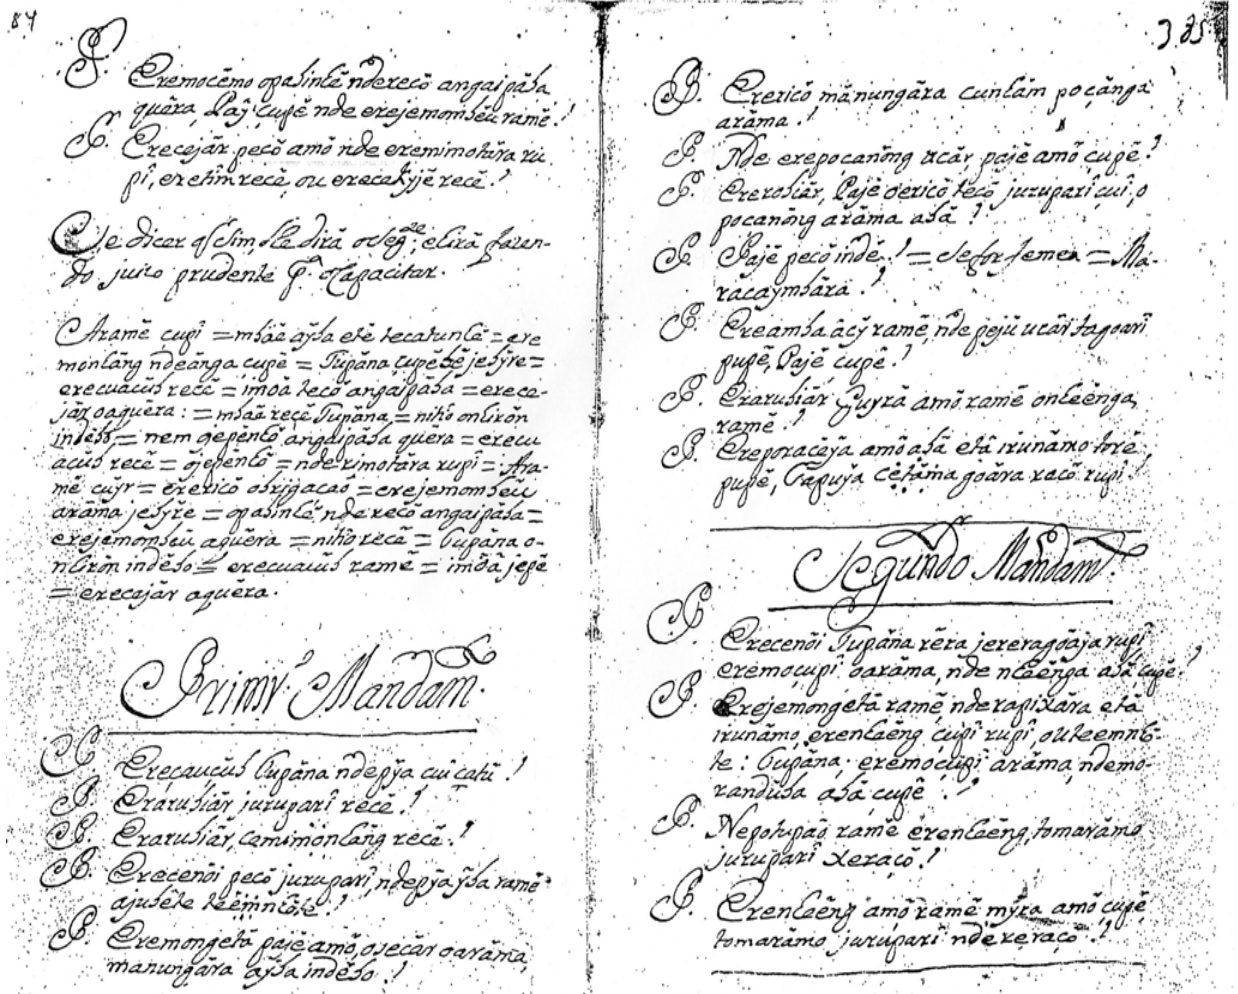 84
P. Eremocẽmo opabinhẽ nderecõ angaipába
quéra, Paỹ çupé nde erejemombeú ramẽ?
P. Erecejár pecõ amõ nde eremimotára ru
pî, eretîmrecẽ, ou erecatyjẽ recẽ?
Se dicer q̃ Sim, lle dirá o seg.te; e hirá fazen-
do juizo prudente p.a o Capacitar.
Aramẽ cupî = mbaẽ aỹba etẽ tecatunhẽ = ere
monhãng ndeãnga cupẽ = Tupãna çupẽbẽ jebỹre =
erecuacúb recẽ = imoã tecõ angaipába = erece-
jár oaquéra: = mbaẽ recẽ Tupãna = nitiõ onhirõn
indẽbo = nem ojepénhõ angaipába quéra = erecu
acúb recẽ = ojepénhõ = nde rimotára rupî = Ara-
mẽ cuỹr = erericõ obrigacaõ = erejemombeú
arãma jebỹre = opabinhẽ nde recõ angaipába =
erejemombeú aquéra = nitiõ recẽ = Tupãna o-
nhirõn indẽbo = erecuacúb ramẽ = imoã jepẽ
= erecejár aquéra.
Primr.o Mandam.
P. Ereçauçúb Tupãna ndepỹa cuî çatú?
P. Erarubiár juruparî recẽ?
P. Erarubiár, cemimonhãng recẽ?
P. Erecenõi pecõ juruparî, ndepỹa ỹba ramẽ
ajubẽte teẽmnhõte?
P. Eremongetá pajẽ amõ, osecár oarãma,
manungára aỹba indẽbo?
385
P. Erericõ mãnungára cunhãm poçãnga
arãma?
P. Nde erepocanõng ucár pajẽ amõ çupẽ?
P. Ererobiár, Pajẽ oericõ tecõ juruparî çuî, o
pocanõng arãma abá?
P. Pajẽ pecõ indẽ? = se for femea = Ma-
racaymbára?
P. Ereamba ácỹ ramẽ, nde pejú ucár tagoarî
pupẽ, Pajẽ çupẽ?
P. Erarubiár Guyrá amõ ramẽ onheẽnga,
ramẽ?
P. Ereporacẽya amõ abá etá irunãmo torẽ,
pupẽ, Tapuỹa cẽtãma goára racõ rupî?
Segundo Mandam.
P. Erecenõi Tupãna rẽra jereragoãja rupî
eremoçupî oarãma, nde nheẽnga abá çupẽ?
P. Erejemongetá ramẽ nderapixára etá
irunãmo, erenheẽng çupî rupî, ou teemnhõ-
te: Tupãna, eremoçupî arãma, ndemo-
randúba abá çupẽ?
P. Nepotupaõ ramẽ erenheẽng, tomarãmo
juruparî xeraçõ?
P. Erenheẽng amõ ramẽ mỹra amõ çupẽ
tomarãmo juruparî nde reraçõ?